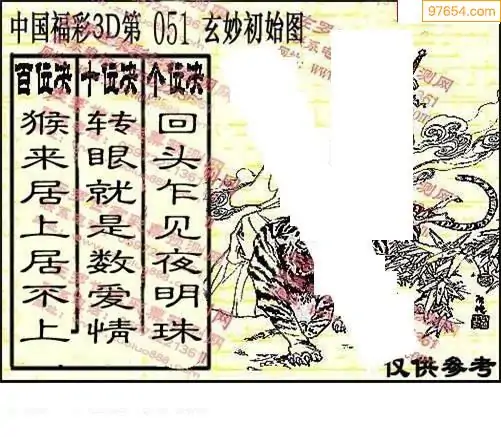 97654.com
中国福彩3D第 051 玄妙初始图
百位决 十位决 个位决
猴来居上居不上
转眼就是数爱情
回头乍见夜明珠
仅供参考